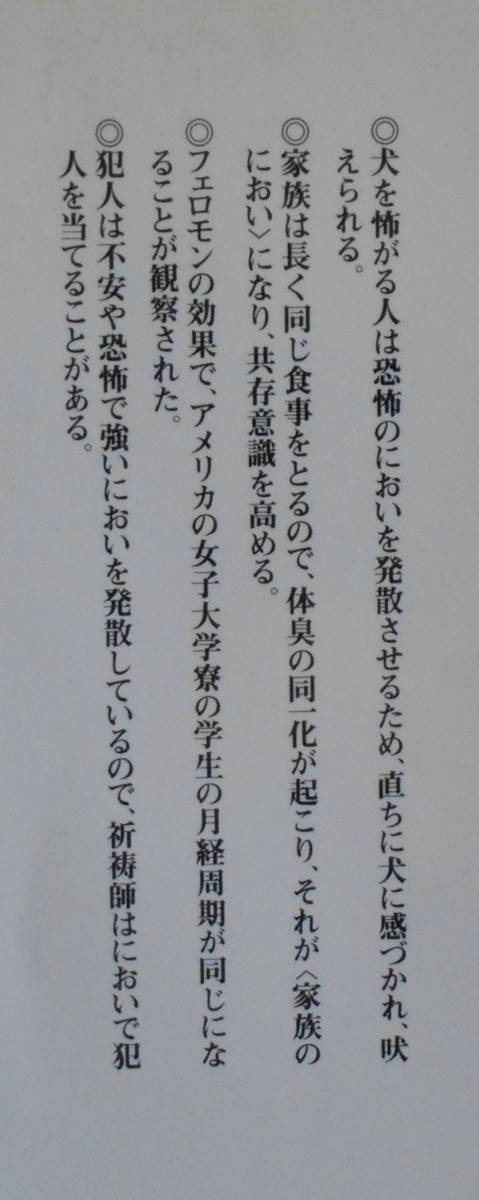 ◎犬を怖がる人は恐怖のにおいを発散させるため、直ちに犬に感づかれ、吠
えられる。
◎家族は長く同じ食事をとるので、体臭の同一化が起こり、それが〈家族の
におい〉になり、共存意識を高める。
◎フェロモンの効果で、アメリカの女子大学寮の学生の月経周期が同じにな
ることが観察された。
◎犯人は不安や恐怖で強いにおいを発散しているので、祈祷師はにおいで犯
人を当てることがある。